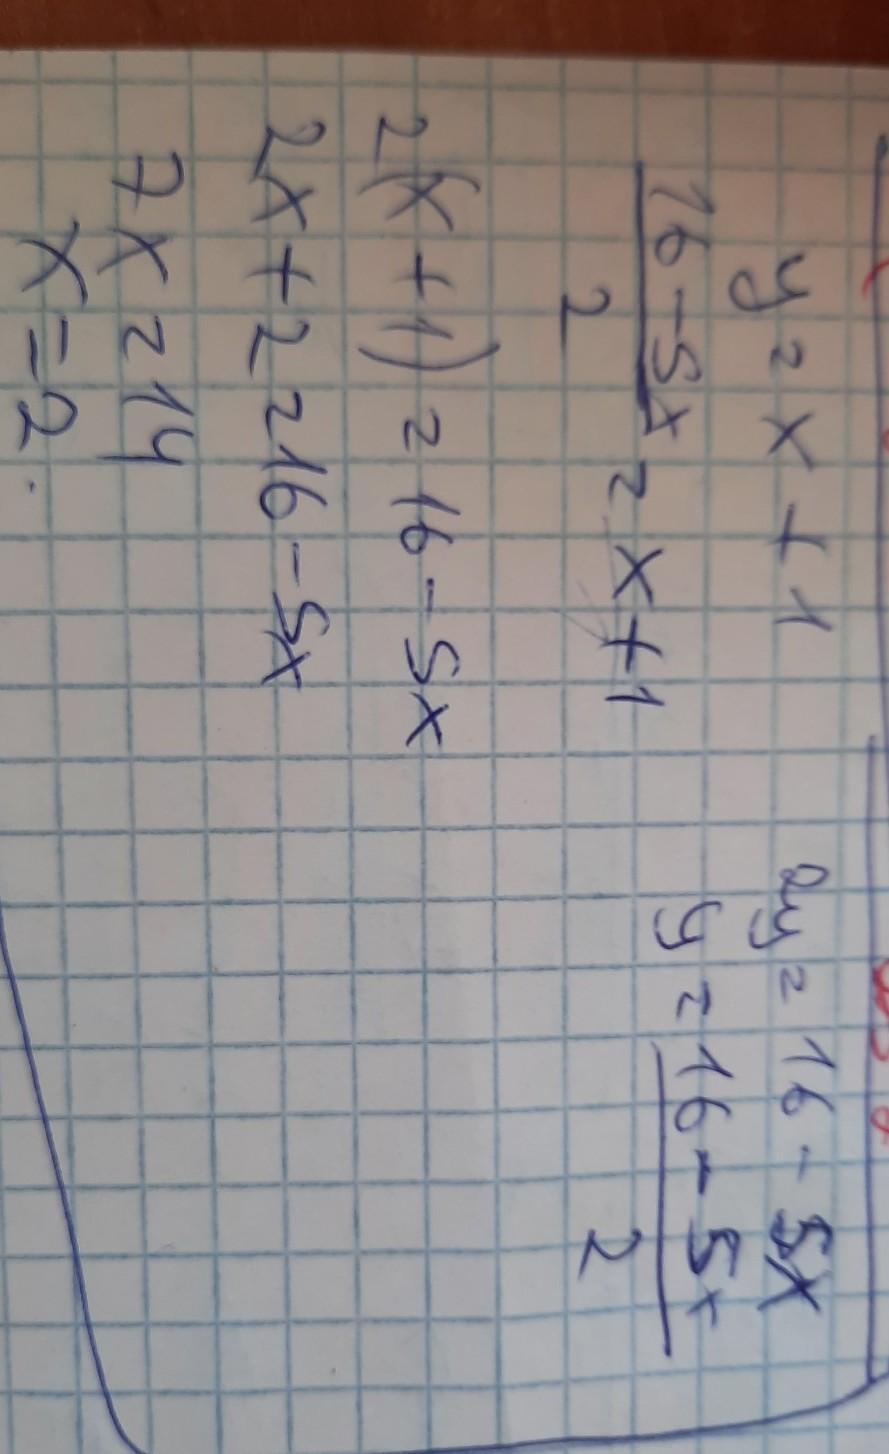 y = x + 1
2y = 16 - 5x
y = 16 - 5x / 2
16 - 5x / 2 = x + 1
2(x + 1) = 16 - 5x
2x + 2 = 16 - 5x
7x = 14
x = 2.